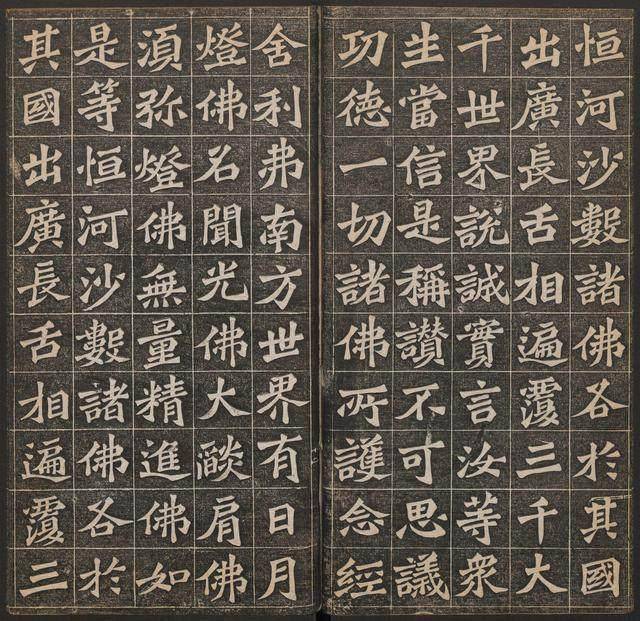 恒河沙數諸佛各於其國
出廣長舌相遍覆三千大
千世界說誠實言汝等眾
生當信是稱讚不可思議
功德一切諸佛所護念經
舍利弗南方世界有日月
燈佛名聞光佛大燄肩佛
須弥燈佛無量精進佛如
是等恒河沙數諸佛各於
其國出廣長舌相遍覆三